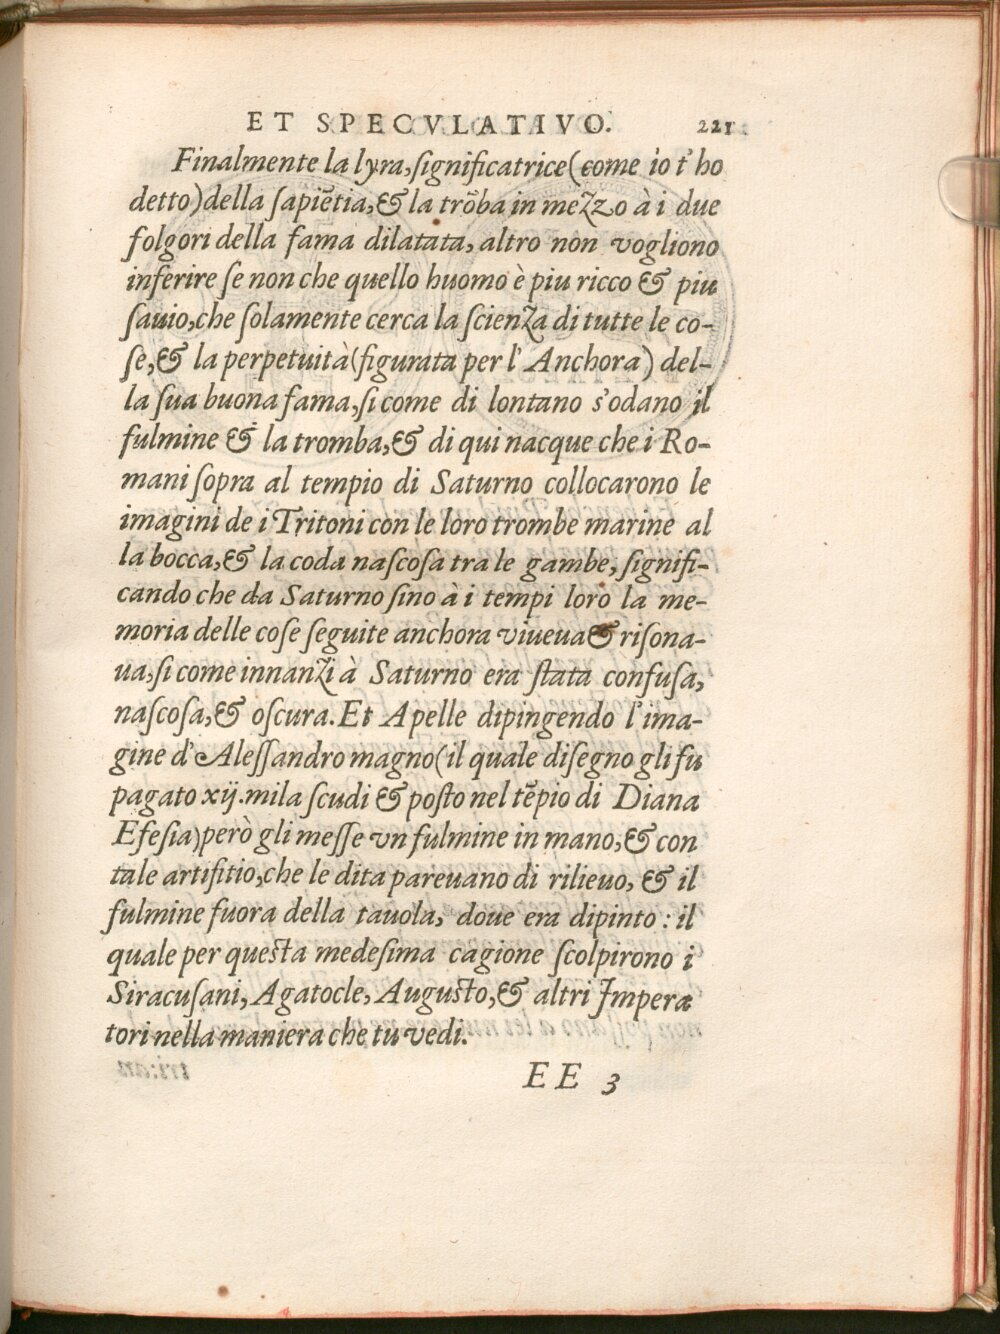 ET SPECVLATIVO. 221
Finalmente la lyra, significatrice (come io t'ho
detto) della sapiẽtia, & la trõba in mezzo à i due
folgori della fama dilatata, altro non vogliono
inferire se non che quello huomo è piu ricco & piu
sauio, che solamente cerca la scienza di tutte le co-
se, & la perpetuità (figurata per l'Anchora) del-
la sua buona fama, si come di lontano s'odano il
fulmine & la tromba, & di qui nacque che i Ro-
mani sopra al tempio di Saturno collocarono le
imagini de i Tritoni con le loro trombe marine al
la bocca, & la coda nascosa tra le gambe, signifi-
cando che da Saturno sino à i tempi loro la me-
moria delle cose seguite anchora viueua & risona-
ua, si come innanzi à Saturno era stata confusa,
nascosa, & oscura. Et Apelle dipingendo l'ima-
gine d'Alessandro magno (il quale disegno gli fu
pagato xij. mila scudi & posto nel tẽpio di Diana
Efesia) però gli messe vn fulmine in mano, & con
tale artifitio, che le dita pareuano di rilieuo, & il
fulmine fuora della tauola, doue era dipinto : il
quale per questa medesima cagione scolpirono i
Siracusani, Agatocle, Augusto, & altri Impera
tori nella maniera che tu vedi.
EE 3